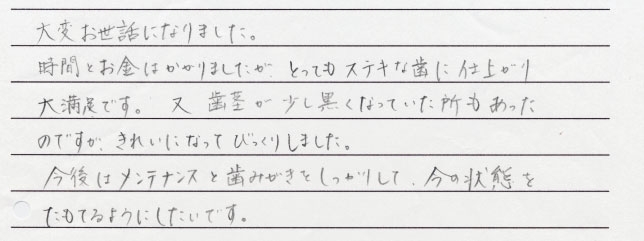 大変お世話になりました。
時間とお金はかかりましたが、とってもステキな歯に仕上がり
大満足です。 又 歯茎が少し黒くなっていた所もあった
のですが、きれいになってびっくりしました。
今後はメンテナンスと歯みがきをしっかりして、今の状態を
たもてるようにしたいです。